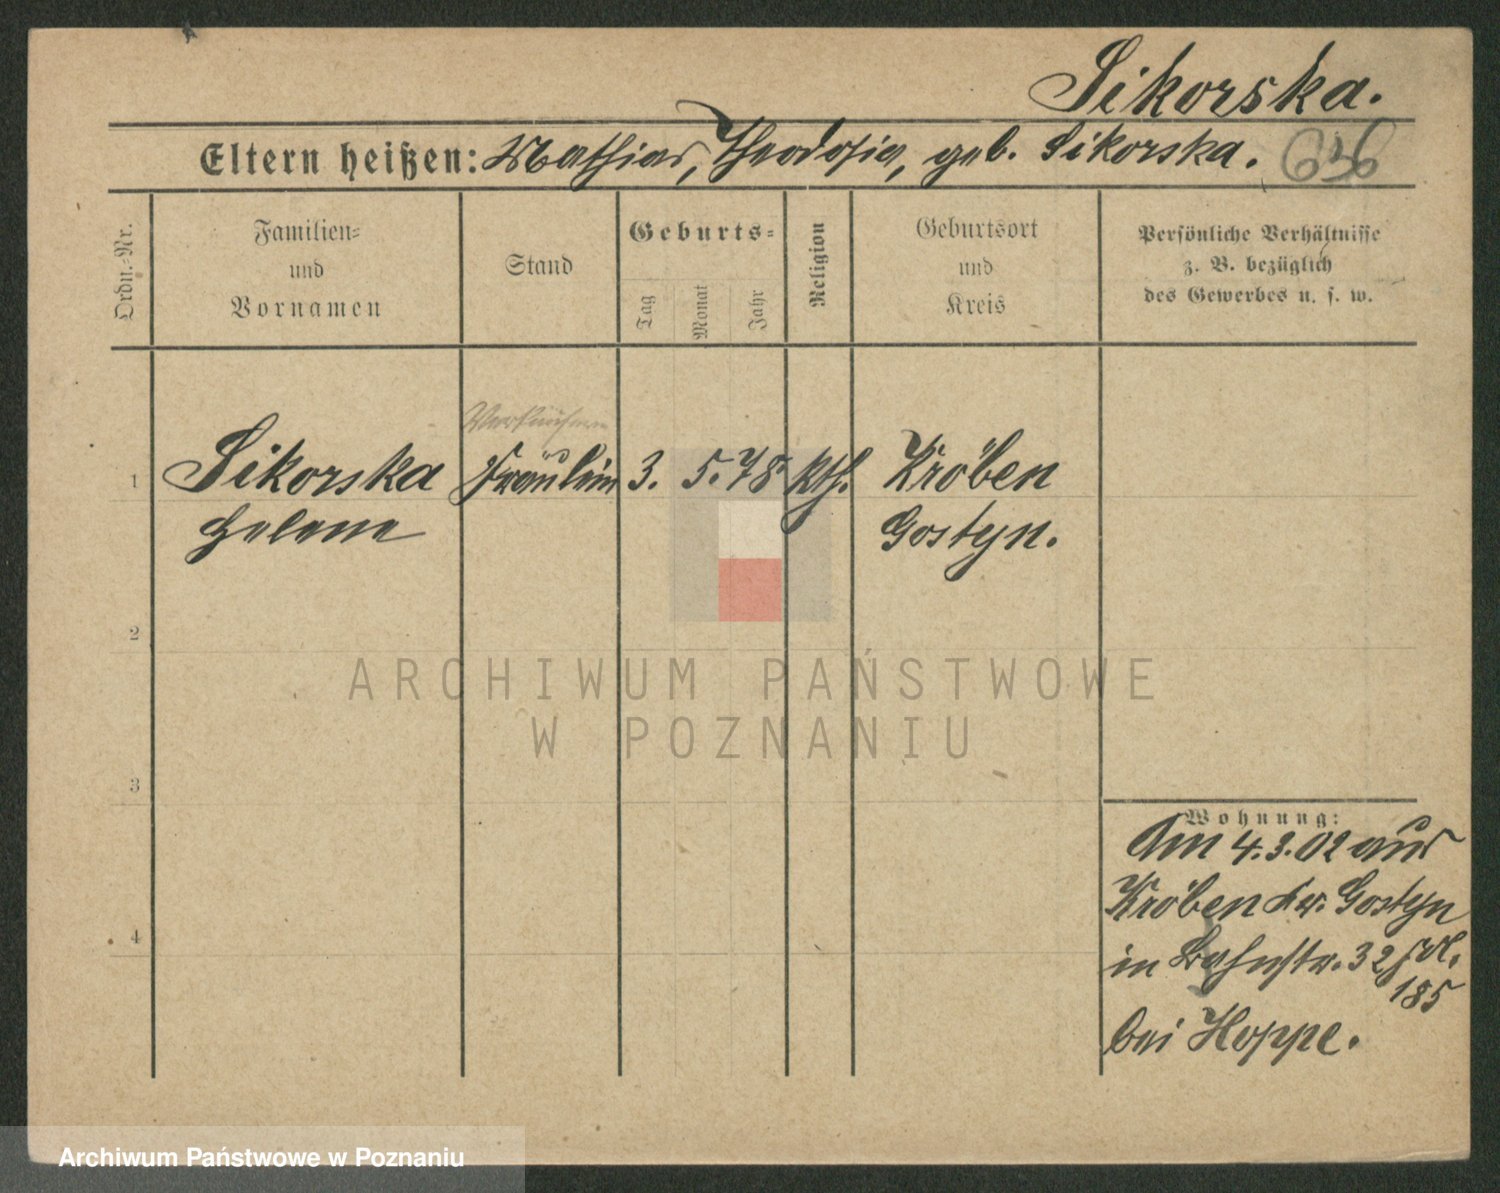 Sikorska.
Eltern heißen: Mathias, Theodosia, geb. Sikorska. 636
Ordn.-Nr.
Familien-
und
Vornamen
Stand
Geburts-
Tag
Monat
Jahr
Religion
Geburtsort
und
Kreis
Persönliche Verhältnisse
z. B. bezüglich
des Gewerbes u. s. w.
Verkäuferin
1 Sikorska Fräulein 3. 5. 78 kth. Kröben
Helene Gostyn.
2
3
4
Wohnung:
Am 4.3.02 aus
Kröben Kr. Gostyn
in Bahnstr. 32
185
bei Hoppe.
ARCHIWUM PAŃSTWOWE
W POZNANIU
Archiwum Państwowe w Poznaniu